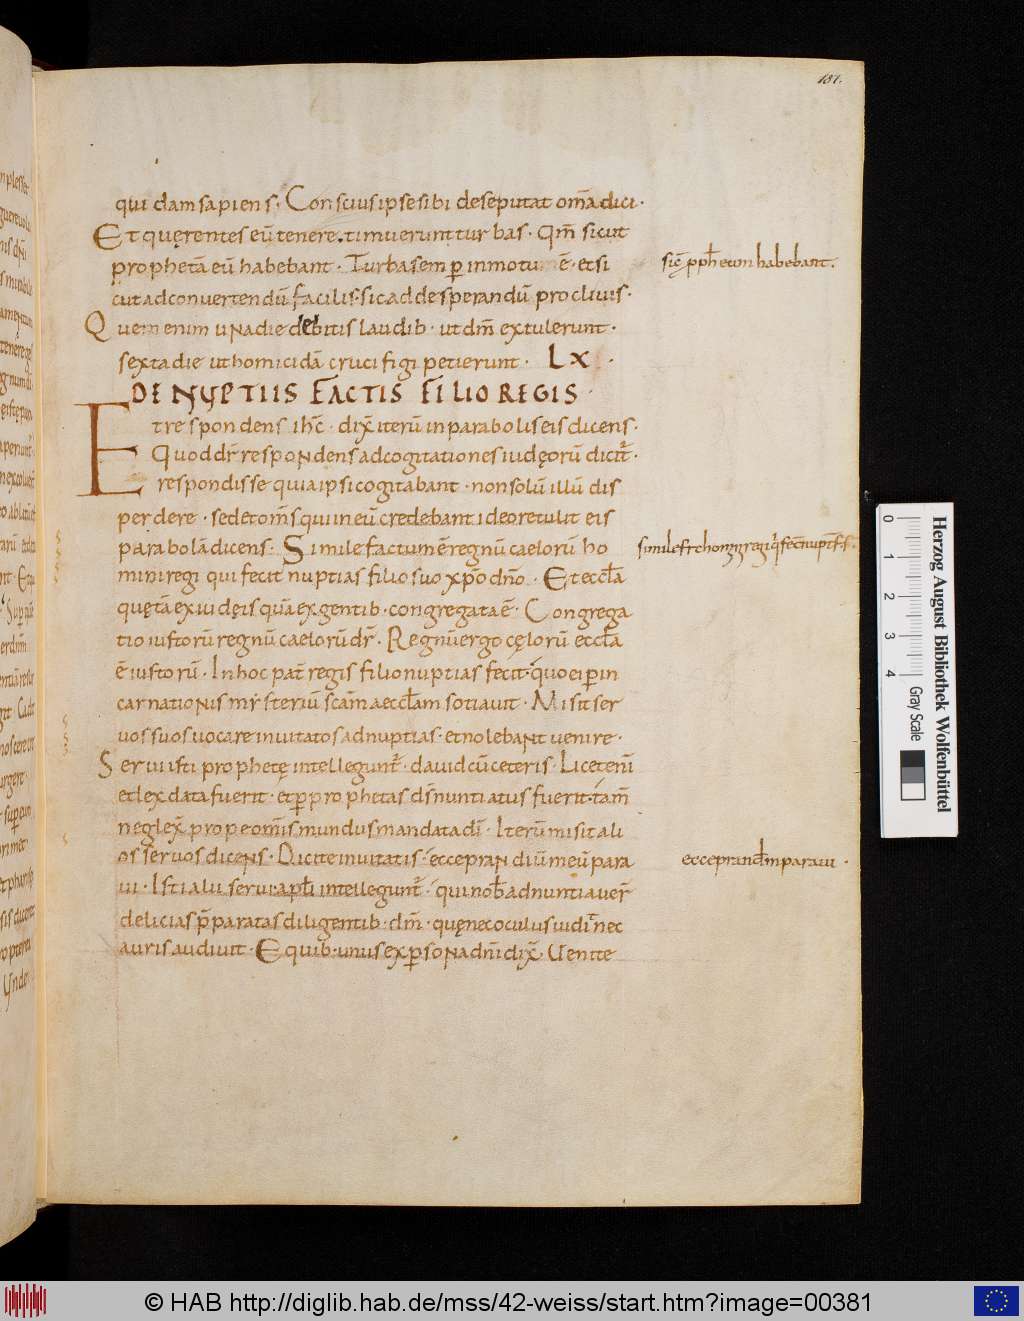 187.
qui dam sapiens. Conscius ipse sibi de se putat om̄a dici.
Et quęrentes eū tenere. timuerunt turbas. Qm̄ sicut
prophetā eū habebant. Turba semp̄ in motu ē. et si
cut ad convertendū facilis. sic ad desperandū proclivis.
Quem enim una die debitis laudib. ut dm̄ extulerunt.
sexta die ut homicidā crucifigi petierunt. LX.
DE NUPTIIS FACTIS FILIO REGIS.
Et respondens ihc̄. dix̄ iterū in parabolis eis dicens.
Quod dr̄ respondens ad cogitationes iudęorū dicit̄.
respondisse quia ipsi cogitabant. non solū illū dis
perdere. sed et om̄s qui in eū credebant ideo retulit eis
parabolā dicens. Simile factum ē regnū caelorū ho
mini regi qui fecit nuptias filio suo xp̄o dn̄o. Et eccl̄a
quę tā ex iudęis quā ex gentib. congregata ē. Congrega
tio iustorū regnū caelorū dr̄. Regnū ergo cęlorū eccl̄a
ē iustorū. In hoc pat̄ regis filio nuptias fecit. quo ei p̄ in
carnationis mysteriū scām aeccl̄am sotiavit. Misit ser
vos suos vocare invitatos ad nuptias. et nolebant venire.
Servi isti prophetę intellegunt̄. david cū ceteris. Licet eni̅
et lex data fuerit. et p̄ prophetas ds̄ nuntiatus fuerit. tam̄
neglex̄ prope om̄is mundus mandata di̅. Iterū misit ali
os servos dicens. Dicite invitatis. ecce prandiū meū para
vi. Isti alii servi apl̄i intellegunt̄. qui nob̄ adnuntiaver̄
delicias p̄paratas diligentib. dm̄. quę nec oculus vidit nec
auris audivit. E quib. unus ex p̄sona dn̄i dix̄. Venite
sic̄ pph̄ eum habebant.
ecce prand̄ m paravi.
Herzog August Bibliothek Wolfenbüttel
0 1 2 3 4
Gray Scale
© HAB http://diglib.hab.de/mss/42-weiss/start.htm?image=00381